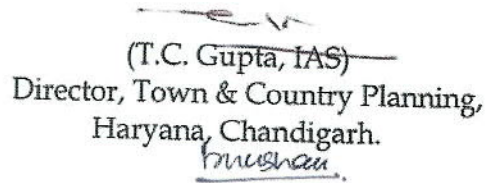 (T.C. Gupta, IAS)
Director, Town & Country Planning,
Haryana, Chandigarh.